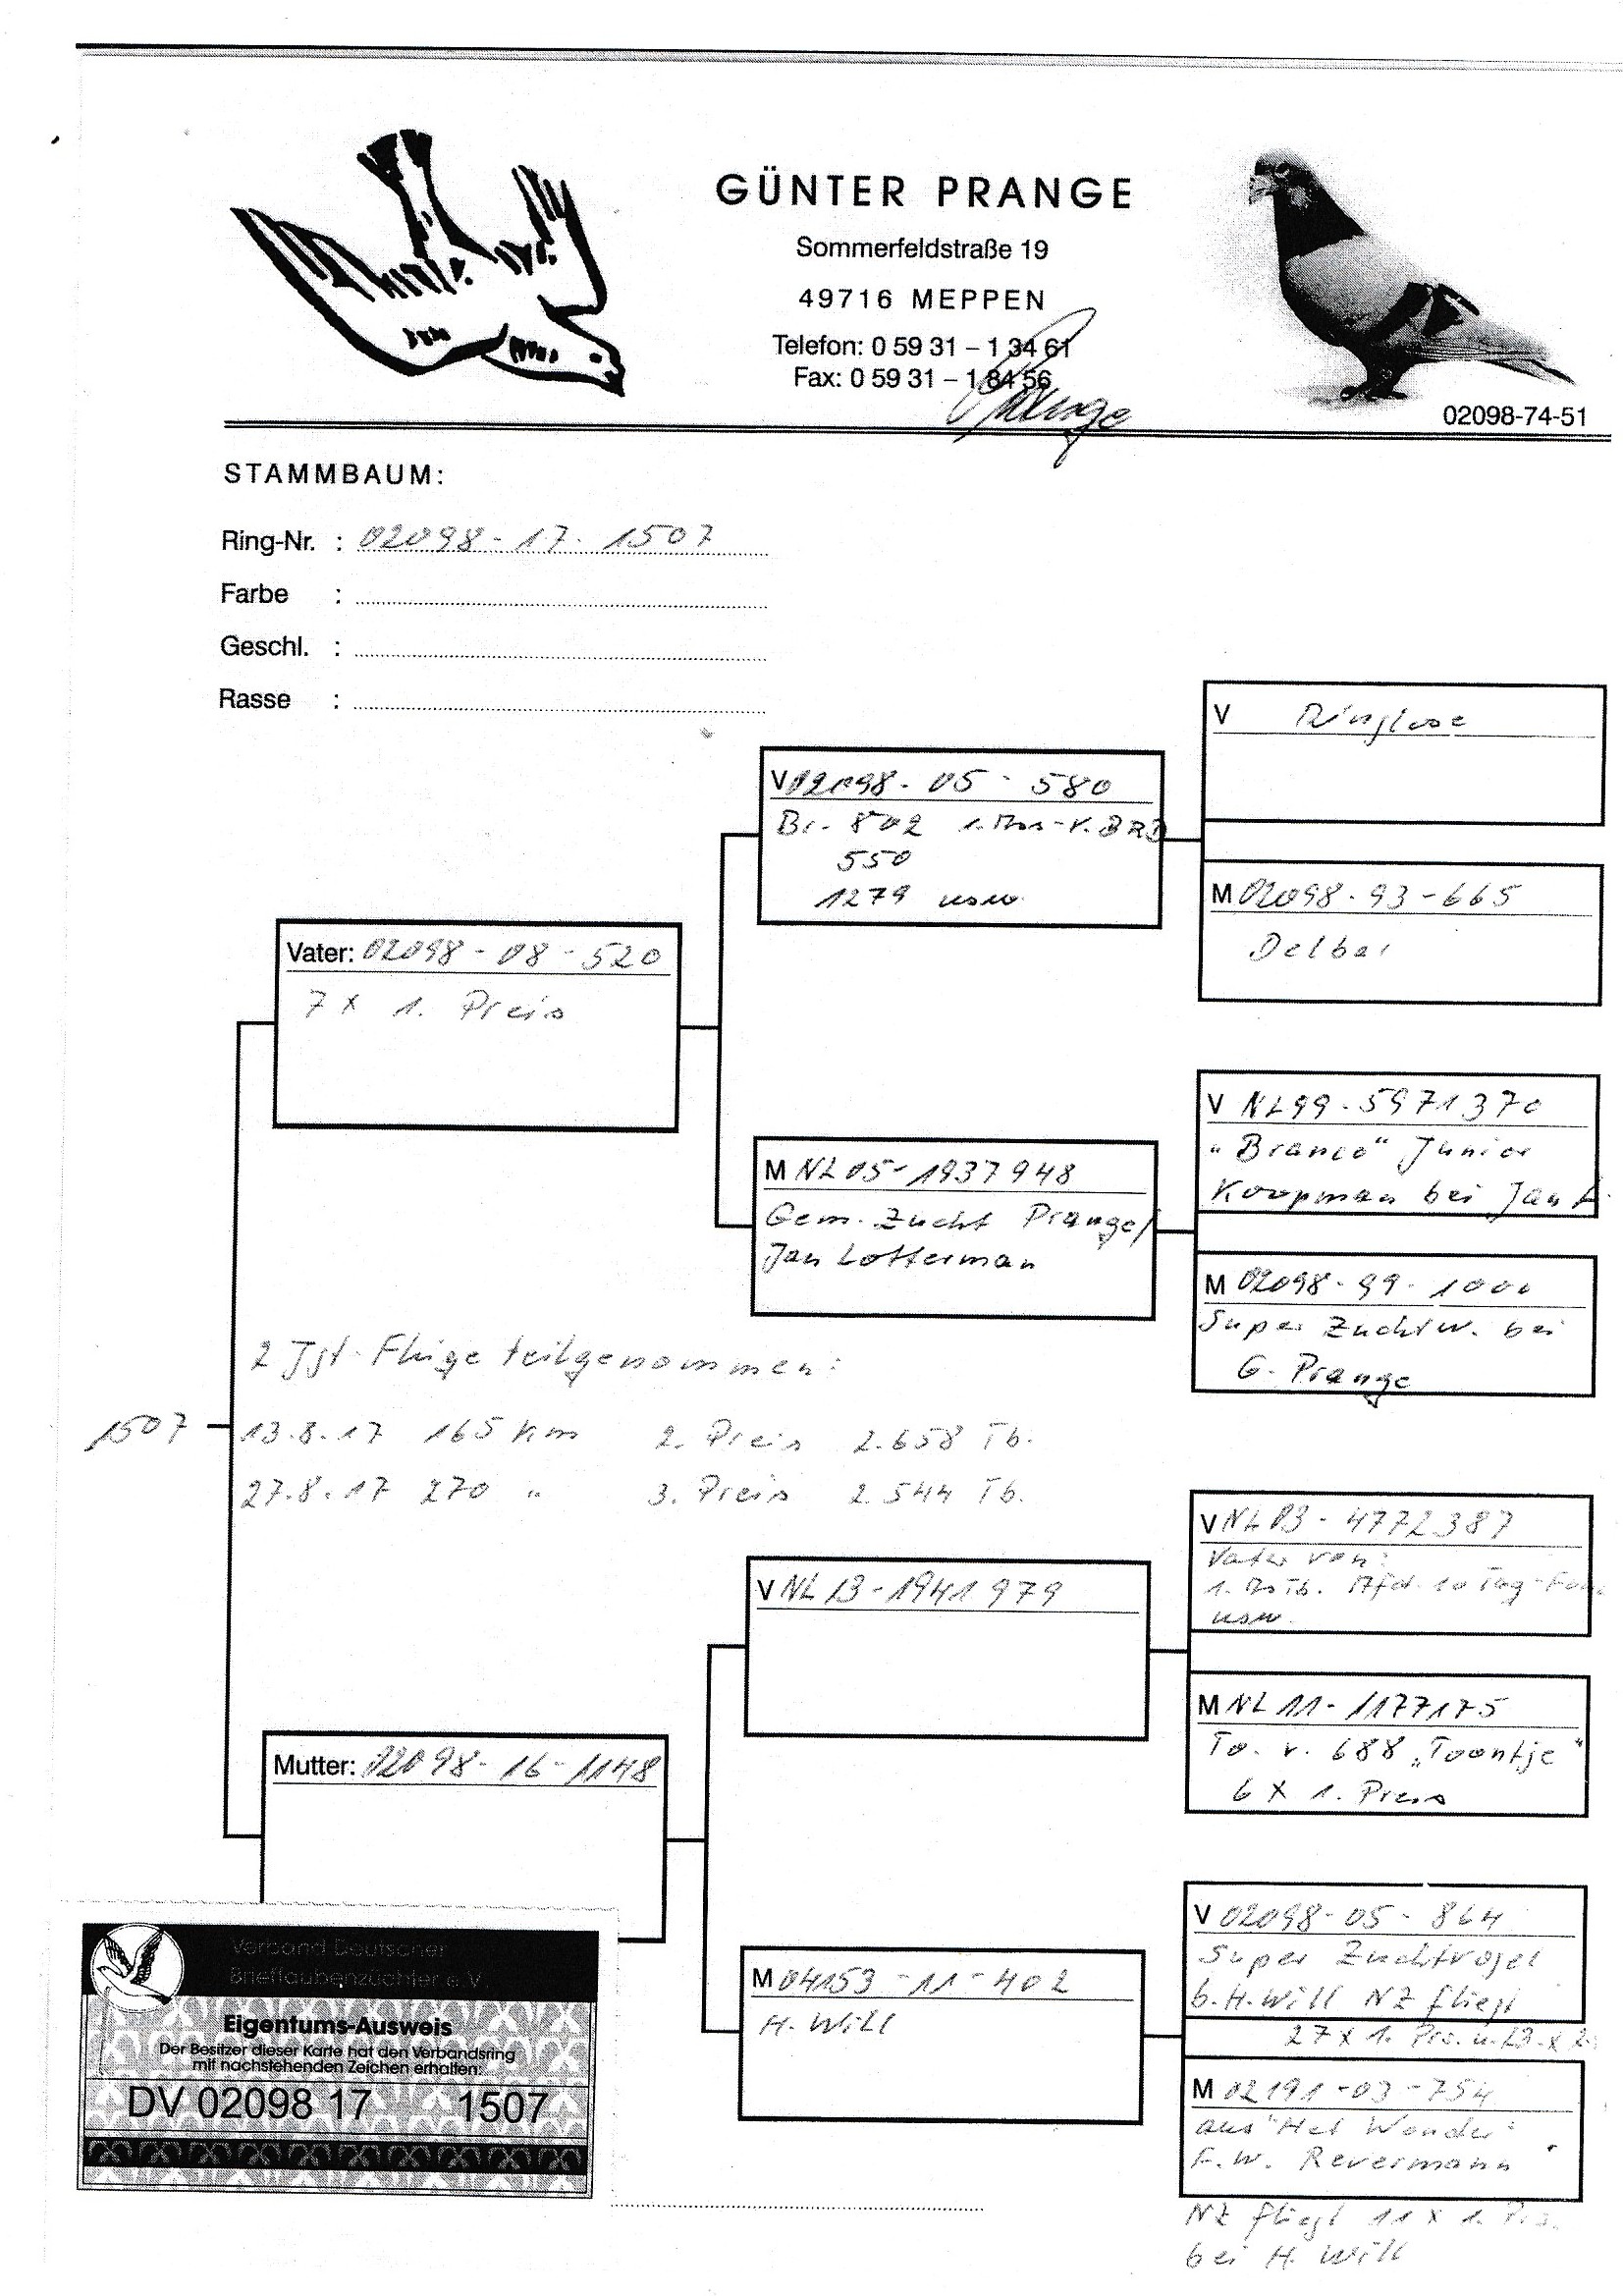 GÜNTER PRANGE
Sommerfeldstraße 19
49716 MEPPEN
Telefon: 0 59 31 – 1 34 61
Fax: 0 59 31 – 1 84 56
Prange
02098-74-51
STAMMBAUM:
Ring-Nr. : 02098-17-1507
Farbe :
Geschl. :
Rasse :
V Ringlose
V 02098-05-580
Br. 802 1. As-V. BRD
550
1279 usw.
M 02098-93-665
Delbar
Vater: 02098-08-520
7 x 1. Preis
V NL99-5971370
"Branco" Junior
Koopman bei Jan L.
M NL05-1937948
Gem. Zucht Prange/
Jan Lotterman
M 02098-99-1000
Super Zuchtw. bei
G. Prange
2 Jgt-Flüge teilgenommen:
1507
13.8.17 165 Km 2. Preis 2.658 Tb.
27.8.17 270 " 3. Preis 2.544 Tb.
V NL03-4772387
Vater von:
1. As Tb. 10 Tag
usw.
V NL13-1941979
M NL11-1177175
To. v. 688 "Toontje"
6 X 1. Preis
Mutter: 02098-16-1148
V 02098-05-864
Super Zuchtvogel
b. H. Will NZ fliegt
27 x 1. Prs. u.
M 04153-11-402
H. Will
M 02191-03-754
aus "Het Wonder"
F.W. Revermann
NZ fliegt 11 x 1. Prs.
bei H. Will
Verband Deutscher
Brieftaubenzüchter e.V.
Eigentums-Ausweis
Der Besitzer dieser Karte hat den Verbandsring
mit nachstehenden Zeichen erhalten:
DV 02098 17 1507